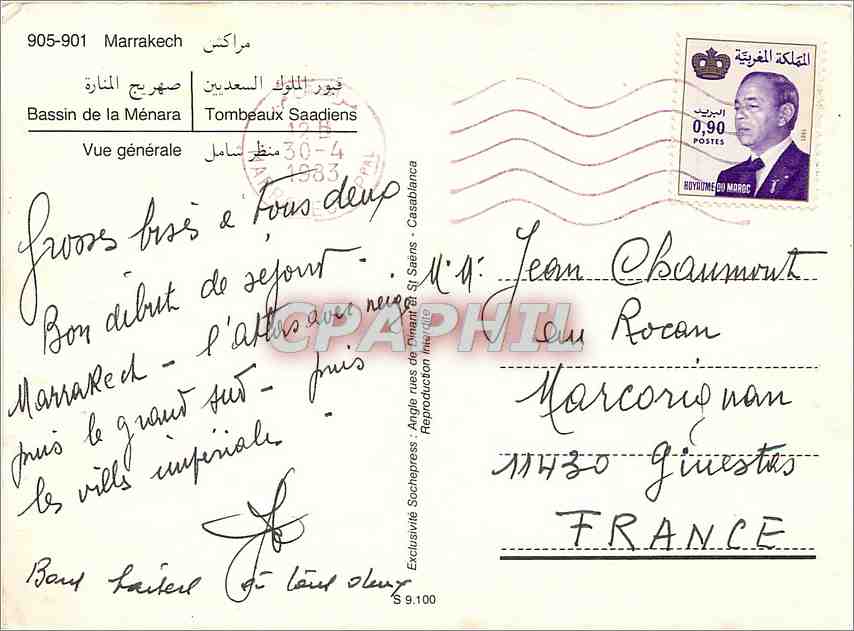 905-901 Marrakech مراكش
صهريج المنارة قبور الملوك السعديين
Bassin de la Ménara Tombeaux Saadiens
Vue générale منظر شامل
12 H
30-4
1983
المملكة المغربية
البريد
0,90
POSTES
1981
ROYAUME DU MAROC
Grosses bises à tous deux
Bon début de séjour -
Marrakech - l'atlas avec neige
puis le grand sud - puis
les villes impériales -
à tous deux
Exclusivité Sochepress : Angle rues de Dinant et St Saëns - Casablanca
Reproduction Interdite
S 9.100
M. Mr Jean Chaumont
au Rocan
Marcorignan
11430 Ginestas
FRANCE
CPAPHIL